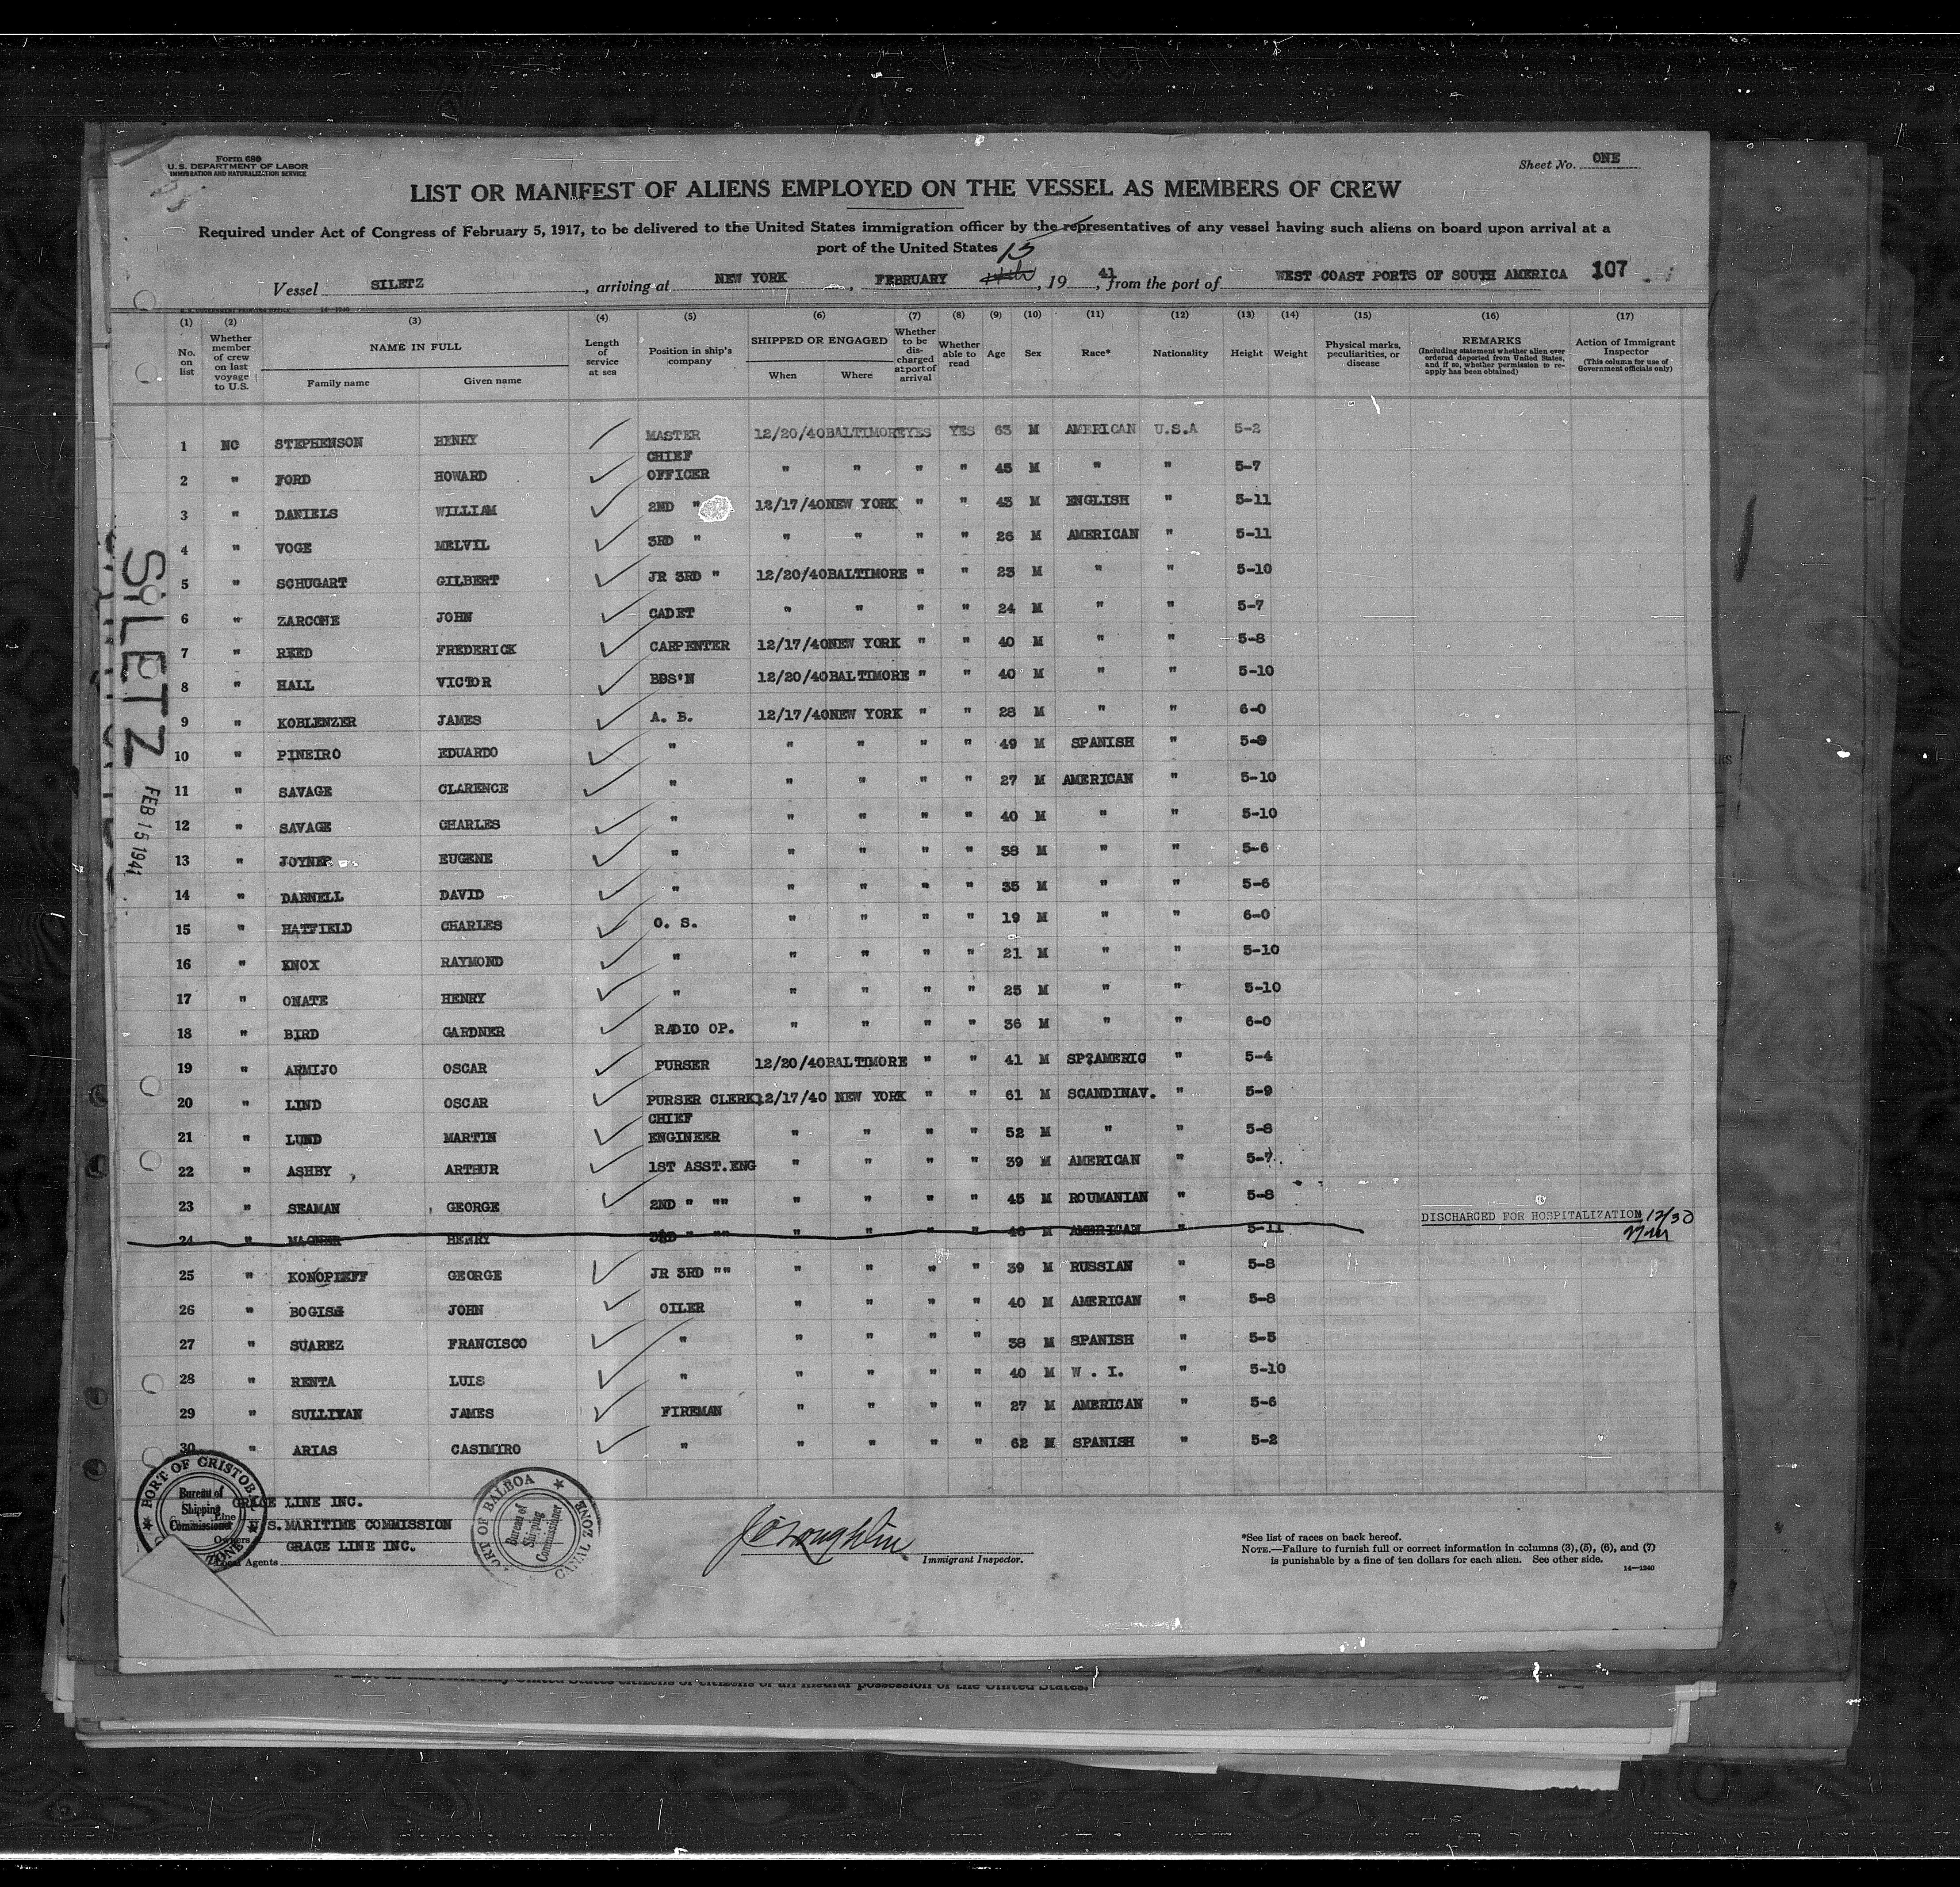 Form 680
U.S. DEPARTMENT OF LABOR
IMMIGRATION AND NATURALIZATION SERVICE
Sheet No. ONE
LIST OR MANIFEST OF ALIENS EMPLOYED ON THE VESSEL AS MEMBERS OF CREW
Required under Act of Congress of February 5, 1917, to be delivered to the United States immigration officer by the representatives of any vessel having such aliens on board upon arrival at a
port of the United States
15
Vessel SILETZ, arriving at NEW YORK, FEBRUARY, 1941, from the port of WEST COAST PORTS OF SOUTH AMERICA 107
U. S. GOVERNMENT PRINTING OFFICE 14—1240
(1) (2) (3) (4) (5) (6) (7) (8) (9) (10) (11) (12) (13) (14) (15) (16) (17)
No. on list
Whether member of crew on last voyage to U.S.
NAME IN FULL
Family name
Given name
Length of service at sea
Position in ship's company
SHIPPED OR ENGAGED
When
Where
Whether to be discharged at port of arrival
Whether able to read
Age
Sex
Race*
Nationality
Height
Weight
Physical marks, peculiarities, or disease
REMARKS
(Including statement whether alien ever ordered deported from United States, and if so, whether permission to reapply has been obtained)
Action of Immigrant Inspector
(This column for use of Government officials only)
1 NO STEPHENSON HENRY MASTER 12/20/40 BALTIMORE YES YES 63 M AMERICAN U.S.A 5-2
2 " FORD HOWARD CHIEF OFFICER " " " " 45 M " " 5-7
3 " DANIELS WILLIAM 2ND " 12/17/40 NEW YORK " " 43 M ENGLISH " 5-11
4 " VOGE MELVIL 3RD " " " " " 26 M AMERICAN " 5-11
5 " SCHUGART GILBERT JR 3RD " 12/20/40 BALTIMORE " " 23 M " " 5-10
6 " ZARCONE JOHN CADET " " " " 24 M " " 5-7
7 " REED FREDERICK CARPENTER 12/17/40 NEW YORK " " 40 M " " 5-8
8 " HALL VICTOR BOS'N 12/20/40 BALTIMORE " " 40 M " " 5-10
9 " KOBLENZER JAMES A. B. 12/17/40 NEW YORK " " 28 M " " 6-0
10 " PINEIRO EDUARDO " " " " " 49 M SPANISH " 5-9
11 " SAVAGE CLARENCE " " " " " 27 M AMERICAN " 5-10
12 " SAVAGE CHARLES " " " " " 40 M " " 5-10
13 " JOYNER EUGENE " " " " " 38 M " " 5-6
14 " DARNELL DAVID " " " " " 35 M " " 5-6
15 " HATFIELD CHARLES O. S. " " " " 19 M " " 6-0
16 " KNOX RAYMOND " " " " " 21 M " " 5-10
17 " ONATE HENRY " " " " " 25 M " " 5-10
18 " BIRD GARDNER RADIO OP. " " " " 36 M " " 6-0
19 " ARMIJO OSCAR PURSER 12/20/40 BALTIMORE " " 41 M SP?AMERIC " 5-4
20 " LIND OSCAR PURSER CLERK 12/17/40 NEW YORK " " 61 M SCANDINAV. " 5-9
21 " LUND MARTIN CHIEF ENGINEER " " " " 52 M " " 5-8
22 " ASHBY ARTHUR 1ST ASST.ENG " " " " 39 M AMERICAN " 5-7
23 " SEAMAN GEORGE 2ND " "" " " " " 45 M ROUMANIAN " 5-8
DISCHARGED FOR HOSPITALIZATION 12/30
24 " MAGNER HENRY 3RD " "" " " " " 46 M AMERICAN " 5-11
25 " KONOPIEFF GEORGE JR 3RD "" " " " " 39 M RUSSIAN " 5-8
26 " BOGISH JOHN OILER " " " " 40 M AMERICAN " 5-8
27 " SUAREZ FRANCISCO " " " " " 38 M SPANISH " 5-5
28 " RENTA LUIS " " " " " 40 M W . I. " 5-10
29 " SULLIVAN JAMES FIREMAN " " " " 27 M AMERICAN " 5-6
30 " ARIAS CASIMIRO " " " " " 62 M SPANISH " 5-2
SILETZ
FEB 15 1941
PORT OF CRISTOBAL
Bureau of Shipping Commissioner
ZONE
Line GRACE LINE INC.
Owners U.S. MARITIME COMMISSION
Agents GRACE LINE INC.
PORT OF BALBOA
Bureau of Shipping Commissioner
CANAL ZONE
J O'Loughlin
Immigrant Inspector.
*See list of races on back hereof.
NOTE.—Failure to furnish full or correct information in columns (3), (5), (6), and (7)
is punishable by a fine of ten dollars for each alien. See other side.
14—1240
United States citizens or citizens of an insular possession of the United States.